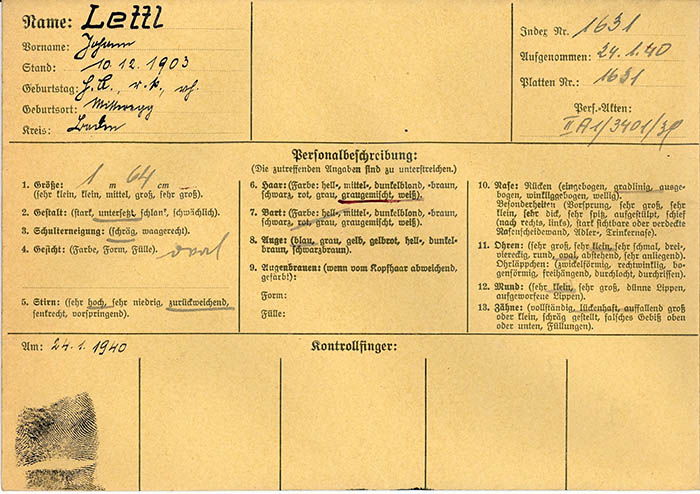 Name: Lettl
Vorname: Johann
Stand: 10.12.1903
Geburtstag:
Geburtsort:
Kreis: Baden
Index Nr. 1631
Aufgenommen: 24.1.40
Platten Nr.: 1631
Pers.-Akten:
II A1/3401/39
Personalbeschreibung:
(Die zutreffenden Angaben sind zu unterstreichen.)
1. Größe: 1 m 64 cm
(sehr klein, klein, mittel, groß, sehr groß).
2. Gestalt: (stark, untersetzt, schlank, schwächlich).
3. Schulterneigung: (schräg, waagerecht).
4. Gesicht: (Farbe, Form, Fülle). oval
5. Stirn: (sehr hoch, sehr niedrig, zurückweichend,
senkrecht, vorspringend).
6. Haar: (Farbe: hell-, mittel-, dunkelblond, -braun,
schwarz, rot, grau, graugemischt, weiß).
7. Bart: (Farbe: hell-, mittel-, dunkelblond, -braun,
schwarz, rot, grau, graugemischt, weiß).
8. Auge: (blau, grau, gelb, gelbrot, hell-, dunkel-
braun, schwarzbraun).
9. Augenbrauen: (wenn vom Kopfhaar abweichend,
gefärbt):
Form:
Fülle:
10. Nase: Rücken (eingebogen, gradlinig, ausge-
bogen, winkliggebogen, wellig).
Besonderheiten (Vorsprung, sehr groß, sehr
klein, sehr dick, sehr spitz, aufgestülpt, schief
(nach rechts, links), stark sichtbare oder verdeckte
Nasenscheidewand, Adler-, Trinkernase).
11. Ohren: (sehr groß, sehr klein, sehr schmal, drei-,
viereckig, rund, oval, abstehend, sehr anliegend).
Ohrläppchen: (zwickelförmig, rechtwinklig, bo-
genförmig, freihängend, durchlocht, durchrissen).
12. Mund: (sehr klein, sehr groß, dünne Lippen,
aufgeworfene Lippen).
13. Zähne: (vollständig, lückenhaft, auffallend groß
oder klein, schräg gestellt, falsches Gebiß oben
oder unten, Füllungen).
Am: 24.1.1940
Kontrollfinger: